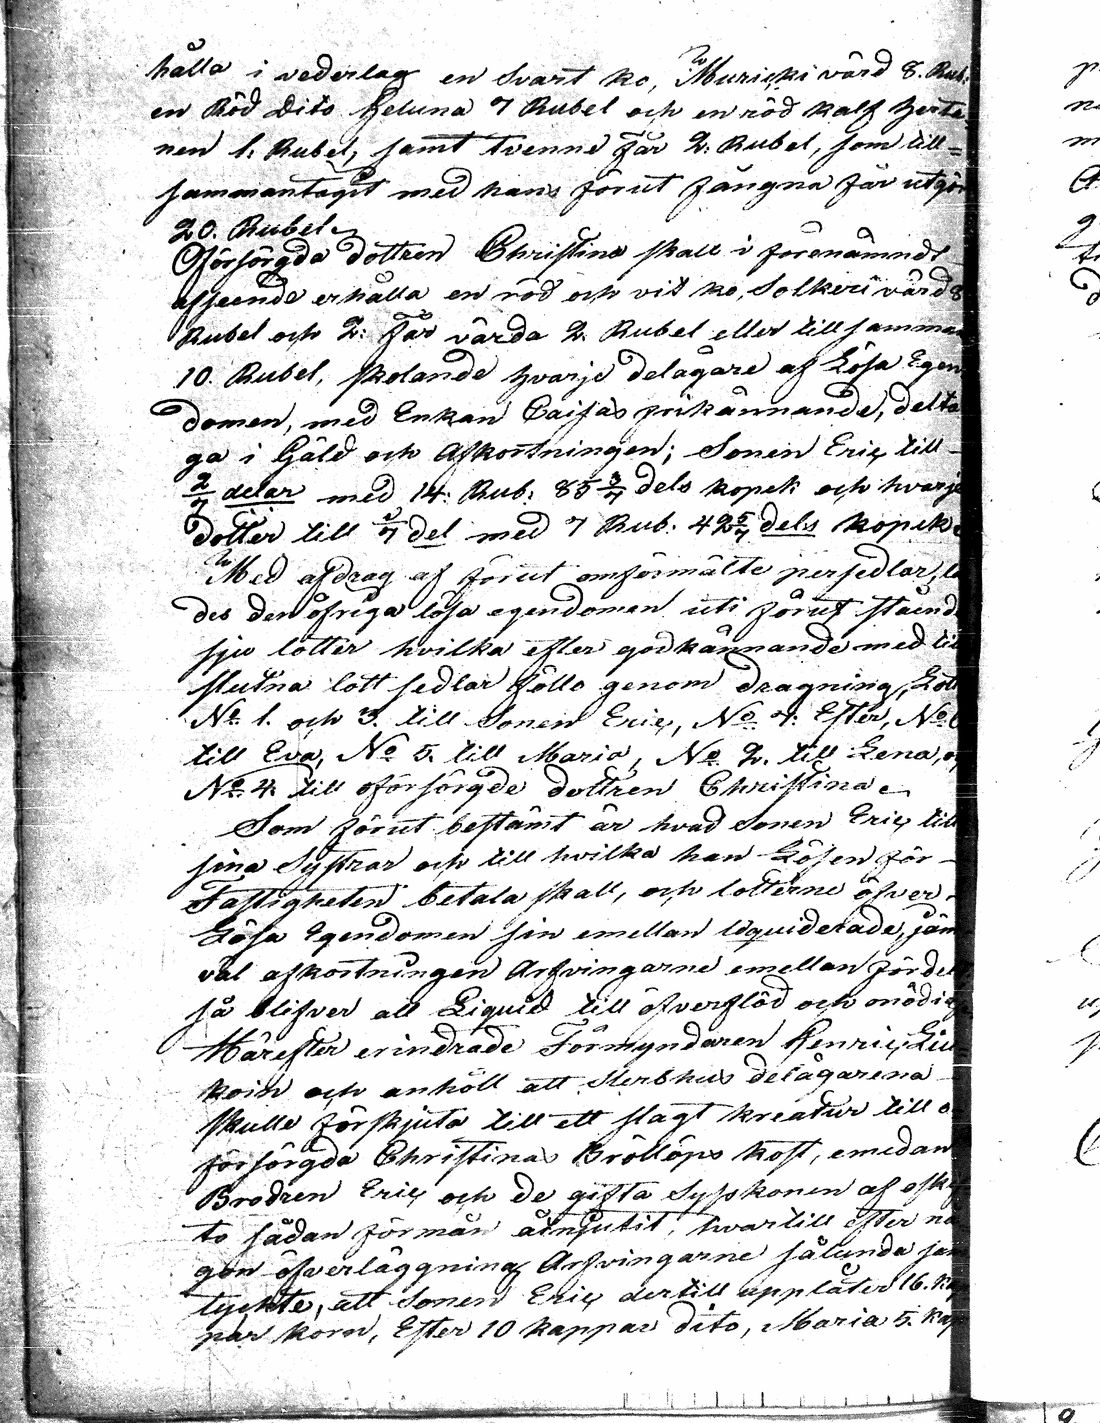 hålla i vederlag en svart ko, Muricki värd 8. Rub.
en Röd Dito Heluna 7 Rubel och en röd kalf Herta
nen 1. Rubel, samt tvenne Får 2. Rubel, som till=
sammantagit med hans förut fångna får utgör
20. Rubel.
Oförsörgda dottren Christina skall i förenämndt
afseende erhålla en röd och vit ko, Solkeri värd 8
Rubel och 2: Får värda 2. Rubel eller till samman
10. Rubel, skolande hvarje delägare af Lösa Egen
domen, med Enkan Caisas prikännande, delta
ga i Gäld och Afkortningen; Sonen Eric till
2/7 delar med 14: Rub: 85 3/7 dels kopek och hvarje
dotter till 1/7 del med 7 Rub. 42 5/7 dels kopek.
Med afdrag af förut omförmälte persedlar,
des den öfriga lösa egendomen uti förut stående
sju lotter hvilka efter godkännande med til
slutna lott sedlar föllo genom dragning, Lott
No 1. och 3. till Sonen Eric, No 7. Ester, No 6
till Eva, No 5. till Maria, No 2. till Lena, o
No 4. till oförsörgde dottren Christina.
Som förut bestämt är hvad sonen Eric till
sina Systrar och till hvilka han Lösen för
Fastigheten betala skall, och lotterne öfver
Lösa Egendomen sin emellan liquiderade, jäm
väl afkortningen Arfvingarne emellan fördel
så blifver all Liquid till öfverflöd och onödig
Härefter erindrade Förmyndaren Henric Liu
koin och anhöll att sterbhus delägarena
skulle förskjuta till ett slagt kreatur till o
försörgda Christinas Bröllops kost, emedan
Brodren Eric och de gifta Syskonen af oskif
to sådan förmån åtnjutit; hvartill efter nå
gon öfverläggning Arfvingarne sålunda sam
tyckte, att Sonen Eric dertill upplåter 16. kap
par korn, Ester 10 kappar dito, Maria 5. kap